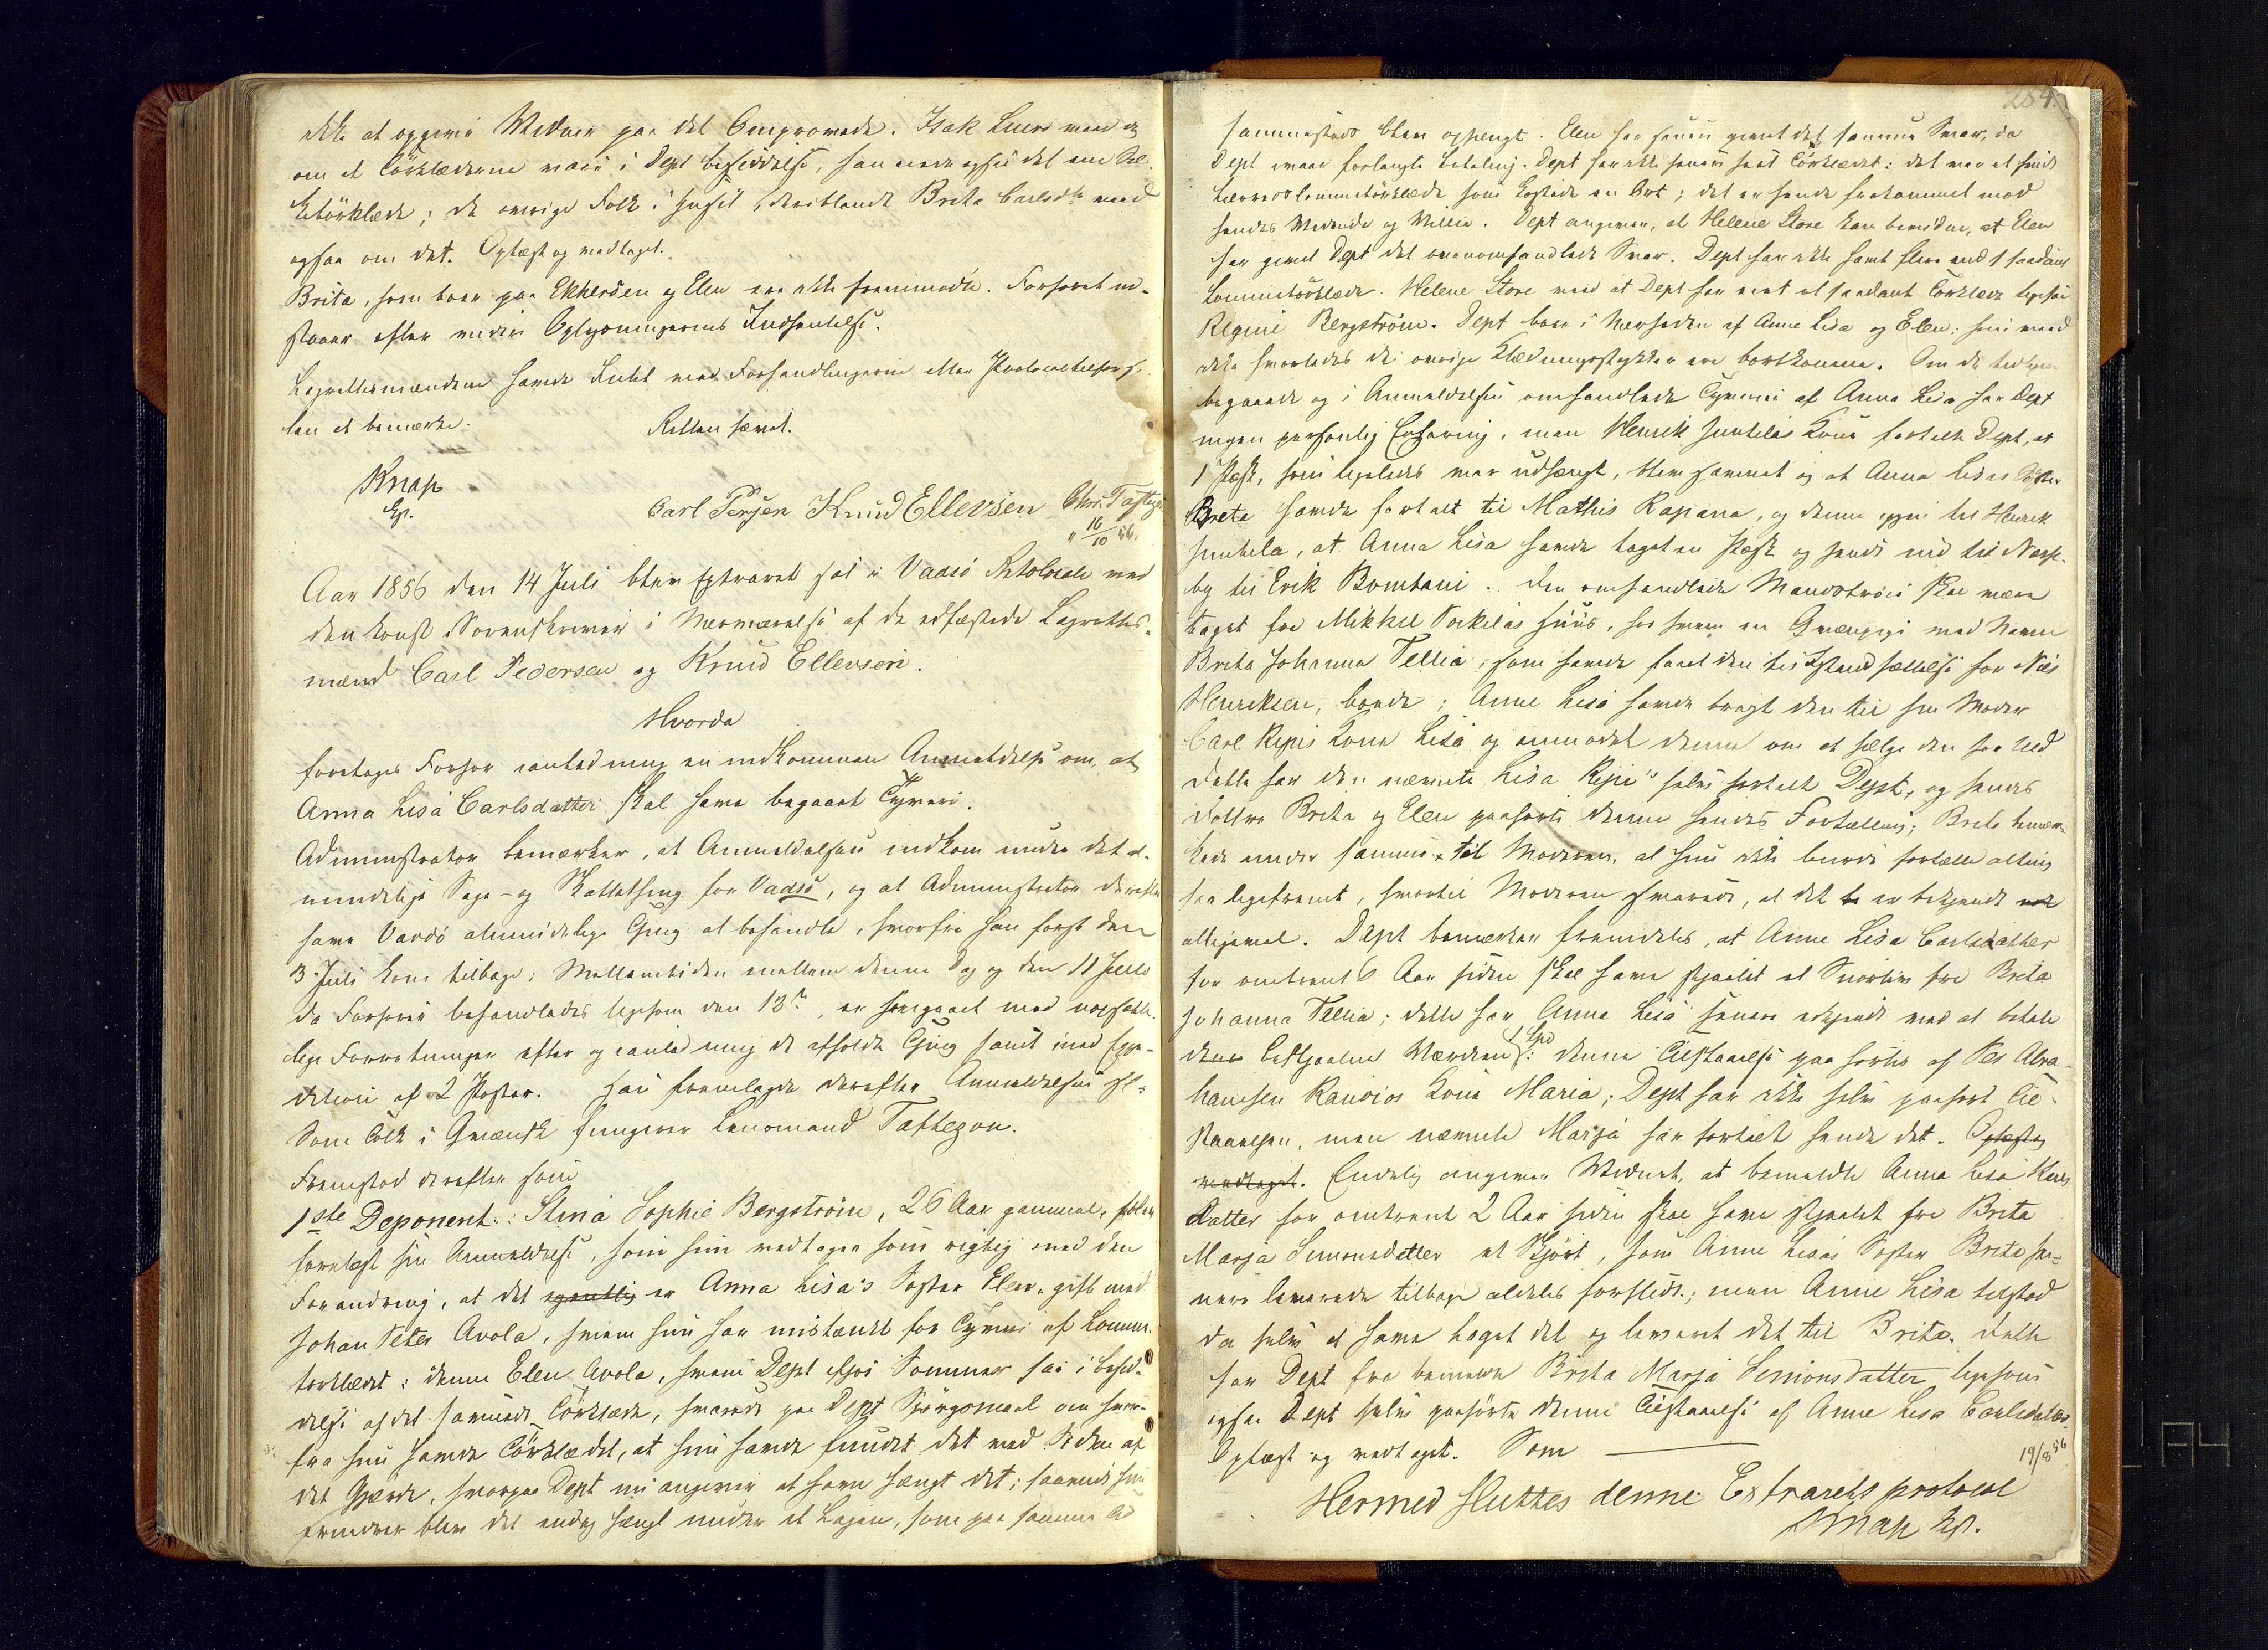 ikke at opgive Vidner paa det Omprovede. Isak Luers veed
om at Tørklæderne vare i Dept besiddelse, han
ketörklæde; de øvrige Folk i Huset, deriblandt Brita Carlsdtr veed
ogsaa om det. Oplæst og vedtaget.
Brita, som boer paa Ekkerøen og Elen ere ikke fremmødte. Forhøret ud-
staaer efter videre Oplysningernes Indhentelse.
Lagrettesmændene havde Intet ved Forhandlingerne eller Protocollationen
ten at bemærke. Retten hævet.
Knap
Ep.
Carl Persen Knud Ellevsen Chr. Taftezon
16/10 56.
Aar 1856 den 14 Juli blev Extraret sat i Vadsö Retslocale ved
den konst Sorenskriver i Nærværelse af de edfæstede Lagrettes-
mænd Carl Pedersen og Knud Ellevsen.
Hvorda
foretoges Forhør i anledning en indkommen Anmeldelse om, at
Anna Lisa Carlsdatter skal have begaaet Tyveri.
Administrator bemærker, at Anmeldelsen indkom under det al-
mindelige Sage- og Skattething for Vadsö, og at Administrator derefter
havde Vardö almindelige Thing at behandle, hvorfra han først den
3 Juli kom tilbage; Mellemtiden mellem denne Dag og den 11 Juli
da Forhöret behandledes ligesom den 13de, er hengaaet med uopsætte-
lige Forretninger efter og i anledning de afholdte Thing samt med Expe-
dition af 2 Poster. Han fremlagde derefter Anmeldelsen
Som Tolk i Qvænsk fungerer Lensmand Taftezon.
Fremstod derefter som
1ste Deponent: Stina Sophie Bergström, 26 Aar gammel, blev
forelæst sin Anmeldelse, som hun vedtager som rigtig med den
Forandring, at det egentlig er Anna Lisa's Søster Elen, gift med
Johan Peter Avola, hvem hun har mistænkt for Tyveri af Lomme-
törklædet; denne Elen Avola, hvem Dept ifjor Sommer saa i besid-
delse af det samme Törklæde, svarede paa Dept Spörgsmaal om hvor-
fra hun havde Törklædet, at hun havde fundet det ved Siden af
det Gjærde, hvorpaa Dept nu angiver at have hængt det; saavidt hun
erindrer blev det endog hængt under et Lagen, som paa samme
284.
sammesteds blev ophængt. Elen har senere givet det samme Svar, da
Dept forlangte betaling. Dept har ikke senere seet Törklædet; det var et hvidt
lærredslommetörklæde som kostede en Ort; det er hende frakommet mod
hendes Vidende og Villie. Dept angiver, at Helene Store kan bevidne, at Elen
har givet Dept det ovenomhandlede Svar. Dept har ikke havt flere end 1 saadant
Lommetörklæde. Helene Store veed at Dept har eiet et saadant Törklæde ligesaa
Regine Bergström. Dept boer i Nærheden af Anne Lisa og Elen; hun veed
ikke hvorledes de øvrige Klædningsstykker ere bortkomne. Om de tidligere
begaaede og i Anmeldelsen omhandlede Tyverier af Anna Lisa har Dept
ingen personlig Erfaring, men Henrik Juntilas Kone fortalte Dept, at
1 Pæsk, som ligeledes var udhængt, blev savnet og at Anna Lisas Søster
Brita havde fortalt til Mathis Rapana, og denne igjen til Henrik
Juntila, at Anna Lisa havde taget en Pæsk og sendt ind til Næsse-
by til Erik Bomtani. Den omhandlede Mandströie skal være
taget fra Mikkel Pockelas Huus, hos hvem en Qvænpige med Navn
Brita Johanna Tellia, som havde faaet den til Istandsættelse for Nils
Henriksen, boede; Anne Lisa havde bragt den til sin Moder
Carl Ripis Kone Lisa og anmodet denne om at sælge den for Uld
Dette har den nævnte Lisa Ripi's selv fortalt Dept, og hendes
döttre Brita og Elen paahörte denne hendes Fortælling; Brita bemær-
kede under samme til Moderen, at hun ikke burde fortælle alting
saa ligefremt, hvortil Moderen svarede, at det er bekjendt
alligevel. Dept bemærker fremdeles, at Anne Lisa Carlsdatter
for omtrent 6 Aar siden skal have stjaalet et Snörliv fra Brita
Johanna Tellia; dette har Anna Lisa senere erkjendt ved at betale
den bestjaalne Værdien 1 Spd; denne Tilstaaelse paahörtes af Per Abra-
hamsen Randios Kone Maria; Dept har ikke selv paahørt Til-
staaelsen, men nævnte Marja har fortalt hende det. Oplæst og
vedtaget. Endelig angiver Vidnet, at bemeldte Anna Lisa Karls
datter for omtrent 2 Aar siden skal have stjaalet fra Brita
Marja Simonsdatter et Skjört, som Anne Lisas Søster Brita se-
nere leverede tilbage aldeles forslidt; men Anne Lisa tilstod
da selv at have taget det og leveret det til Brita. Dette
har Dept fra bemeldte Brita Marja Simonsdatter ligesom
ogsaa Dept selv paahörte denne Tilstaaelse af Anne Lisa Carlsdatter.
Oplæst og vedtaget. Som
19/8 56
Hermed sluttes denne Extraretsprotocol
Knap Ep.